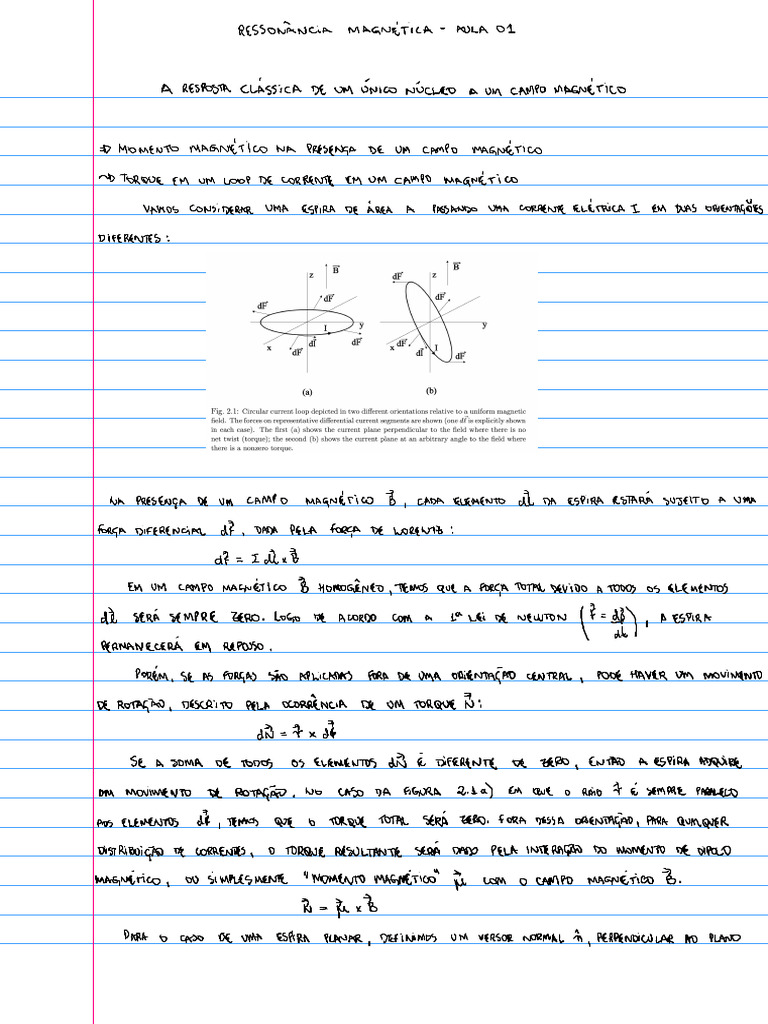 RESSONÂNCIA MAGNÉTICA - AULA 01
A RESPOSTA CLÁSSICA DE UM ÚNICO NÚCLEO A UM CAMPO MAGNÉTICO
⇒ MOMENTO MAGNÉTICO NA PRESENÇA DE UM CAMPO MAGNÉTICO
~> TORQUE EM UM LOOP DE CORRENTE EM UM CAMPO MAGNÉTICO
VAMOS CONSIDERAR UMA ESPIRA DE ÁREA A PASSANDO UMA CORRENTE ELÉTRICA I EM DUAS ORIENTAÇÕES
DIFERENTES:
z B⃗ dF⃗ dF⃗ I y x dF⃗ dl⃗ dF⃗
(a)
dF⃗ z B⃗ dF⃗ y x dF⃗ dl⃗ I dF⃗
(b)
Fig. 2.1: Circular current loop depicted in two different orientations relative to a uniform magnetic
field. The forces on representative differential current segments are shown (one dl⃗ is explicitly shown
in each case). The first (a) shows the current plane perpendicular to the field where there is no
net twist (torque); the second (b) shows the current plane at an arbitrary angle to the field where
there is a nonzero torque.
NA PRESENÇA DE UM CAMPO MAGNÉTICO B⃗, CADA ELEMENTO dl⃗ DA ESPIRA ESTARÁ SUJEITO A UMA
FORÇA DIFERENCIAL dF⃗, DADA PELA FORÇA DE LORENTZ:
dF⃗ = I dl⃗ × B⃗
EM UM CAMPO MAGNÉTICO B⃗ HOMOGÊNEO, TEMOS QUE A FORÇA TOTAL DEVIDO A TODOS OS ELEMENTOS
dl⃗ SERÁ SEMPRE ZERO. LOGO DE ACORDO COM A 1ª LEI DE NEWTON (F⃗ = dp⃗/dt), A ESPIRA
PERMANECERÁ EM REPOUSO.
PORÉM, SE AS FORÇAS SÃO APLICADAS FORA DE UMA ORIENTAÇÃO CENTRAL, PODE HAVER UM MOVIMENTO
DE ROTAÇÃO, DESCRITO PELA OCORRÊNCIA DE UM TORQUE N⃗:
dN⃗ = r⃗ × dF⃗
SE A SOMA DE TODOS OS ELEMENTOS dN⃗ É DIFERENTE DE ZERO, ENTÃO A ESPIRA ADQUIRE
UM MOVIMENTO DE ROTAÇÃO. NO CASO DA FIGURA 2.1a) EM QUE O RAIO r⃗ É SEMPRE PARALELO
AOS ELEMENTOS dF⃗, TEMOS QUE O TORQUE TOTAL SERÁ ZERO. FORA DESSA ORIENTAÇÃO, PARA QUALQUER
DISTRIBUIÇÃO DE CORRENTES, O TORQUE RESULTANTE SERÁ DADO PELA INTERAÇÃO DO MOMENTO DE DIPOLO
MAGNÉTICO, OU SIMPLESMENTE "MOMENTO MAGNÉTICO" μ⃗ COM O CAMPO MAGNÉTICO B⃗.
N⃗ = μ⃗ × B⃗
PARA O CASO DE UMA ESPIRA PLANAR, DEFINIMOS UM VERSOR NORMAL n̂, PERPENDICULAR AO PLANO